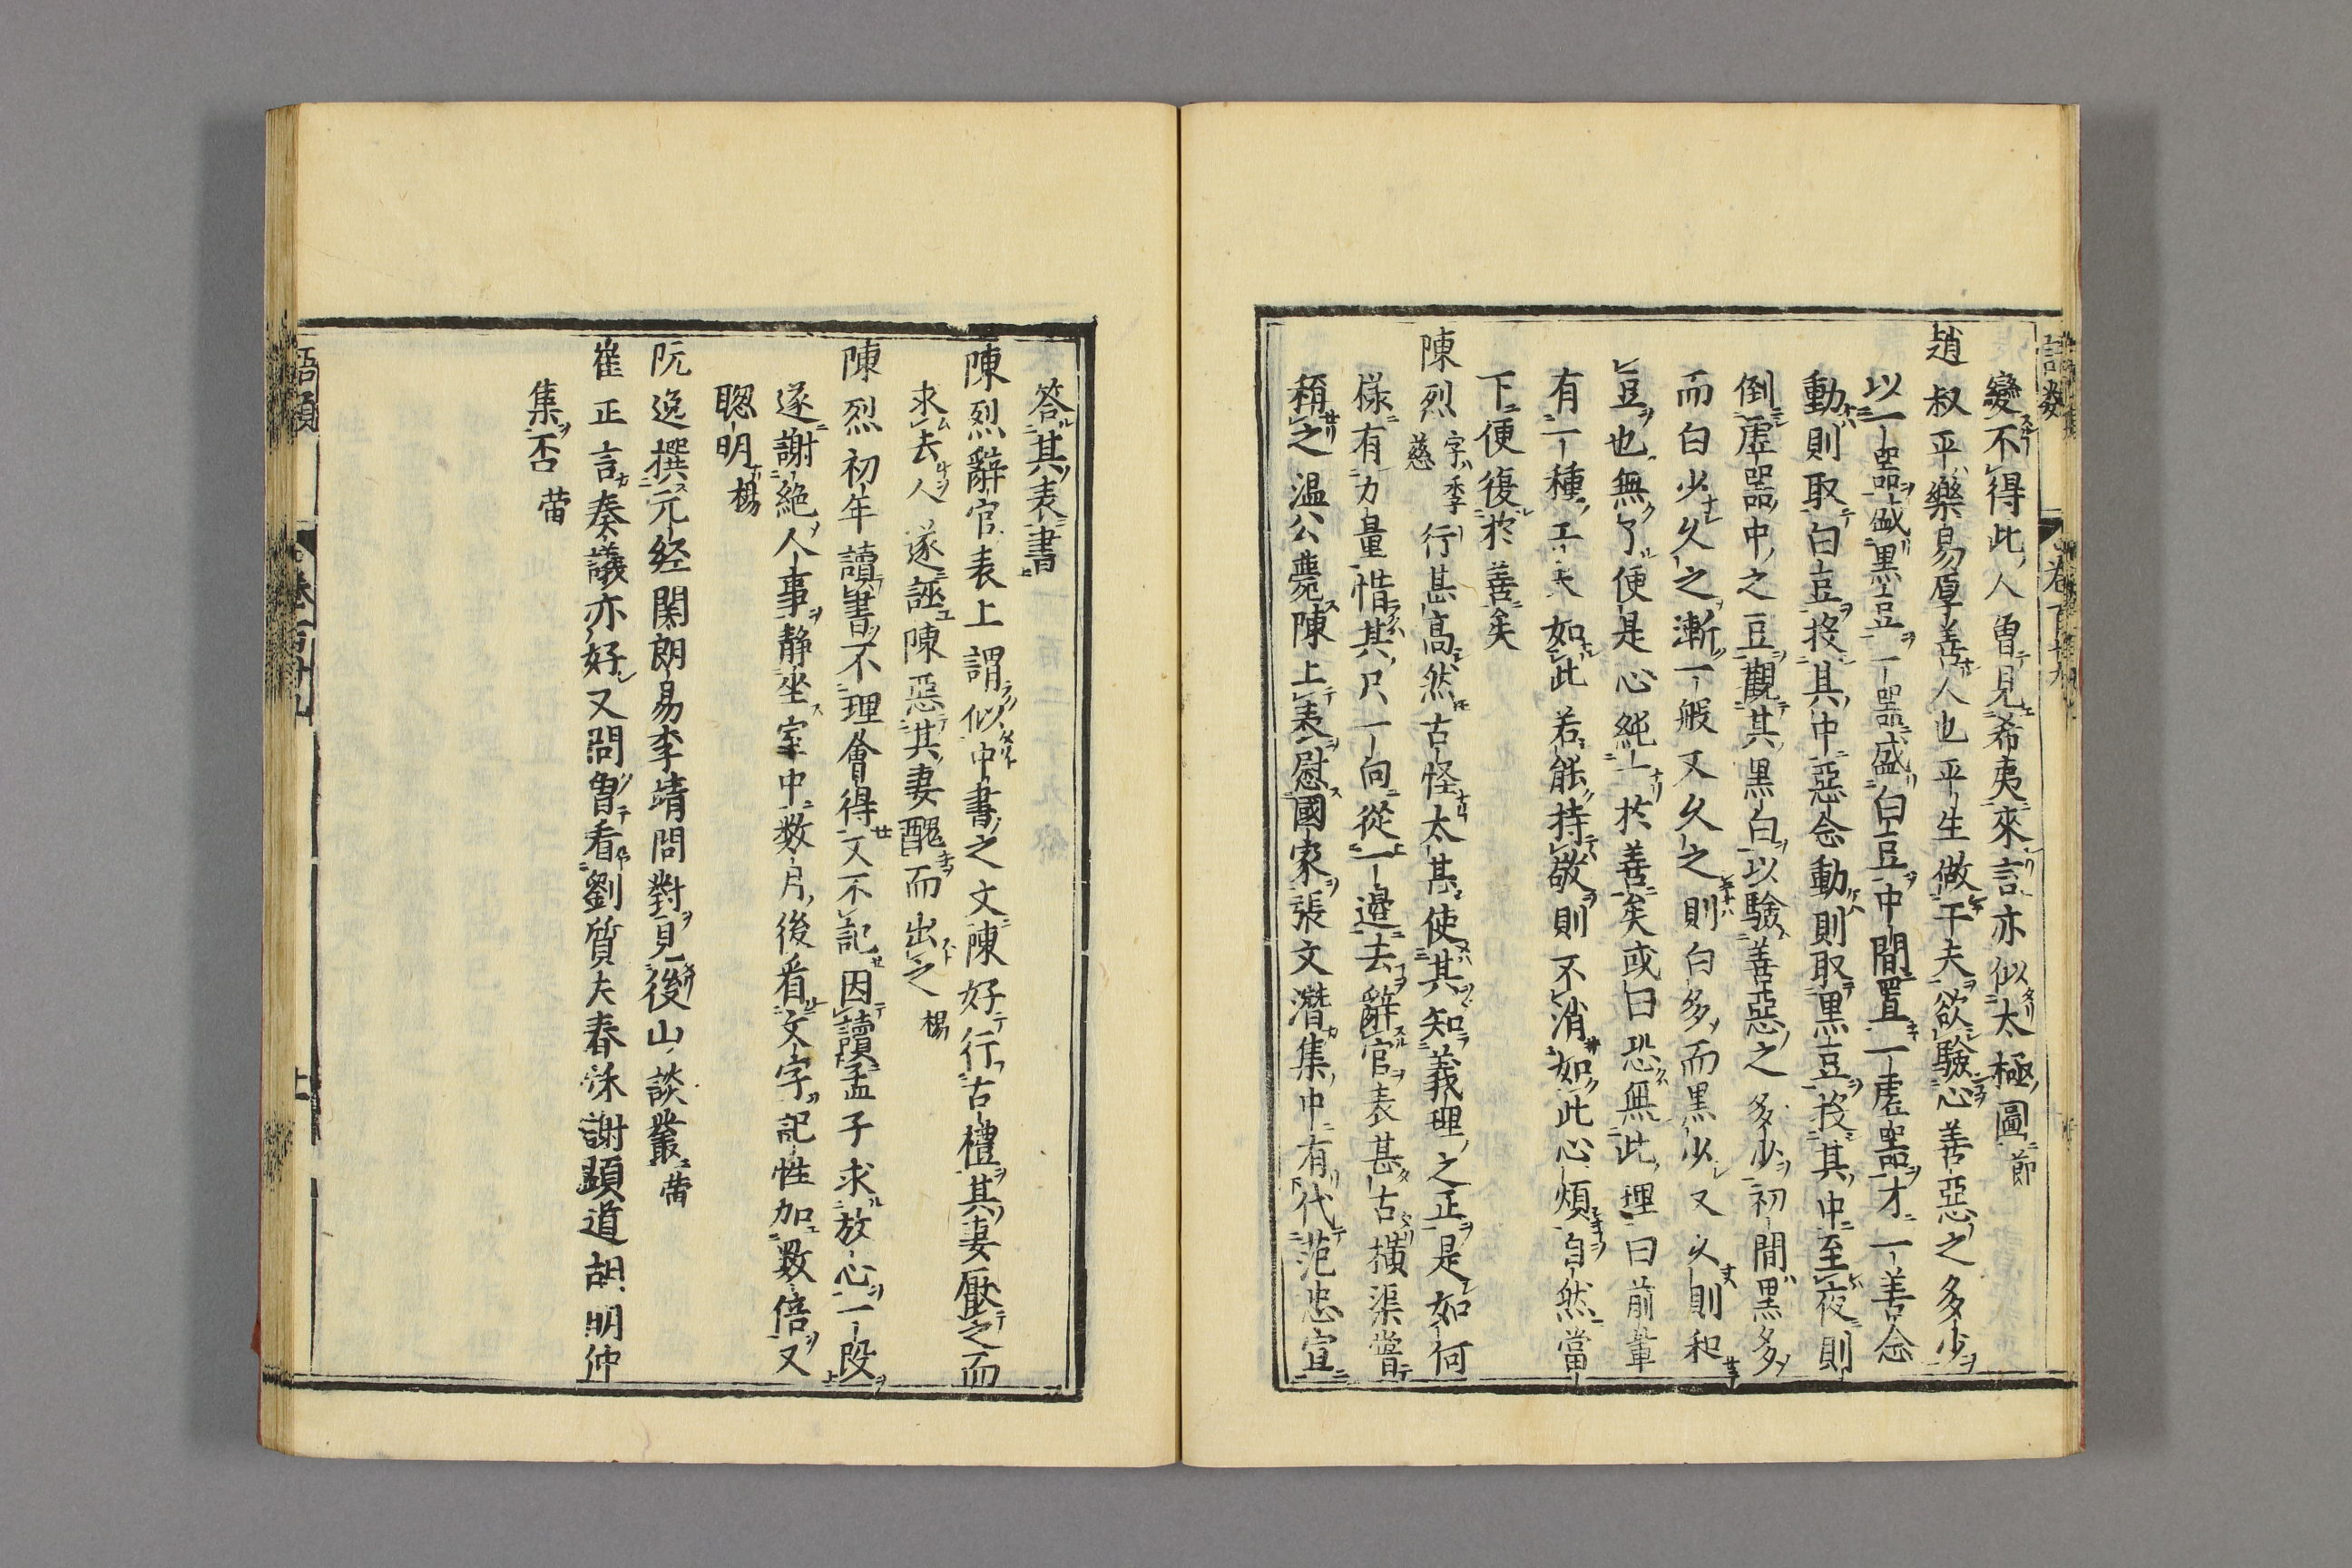 變不得此人曽見希夷來言亦似太極圖節
趙叔平樂易厚善人也平生做干夫欲驗心善惡之多少
以一器盛黒豆一器盛白豆中間置一虚器才一善念
動則取白豆投其中惡念動則取黒豆投其中至夜則
倒虚器中之豆觀其黒白以驗善惡之多少初間黒多
而白少久之漸一般又久之則白多而黒少又久則和
豆也無了便是心純一於善矣或曰恐無此理曰前輩
有一種工夫如此若能持敬則不消如此心煩自然當
下便復於善矣
陳烈字季慈行甚高然古怪太甚使其知義理之正是如何
様有力量惜其只一向從一邉去辭官表甚古横渠嘗
稱之温公薨陳上表慰國家張文潛集中有代范忠宣
答其表書
陳烈辭官表上謂似中書之文陳好行古禮其妻厭之而
求去人遂誣陳惡其妻醜而出之楊
陳烈初年讀書不理會得又不記因讀孟子求放心一段
遂謝絶人事静坐室中数月後看文字記性加數倍又
聰明楊
阮逸撰元経関朗易李靖問對見後山談叢𦼮
崔正言奏議亦好又問曽看劉質夫春秋謝顕道胡明仲
集否
語類
卷百廿九